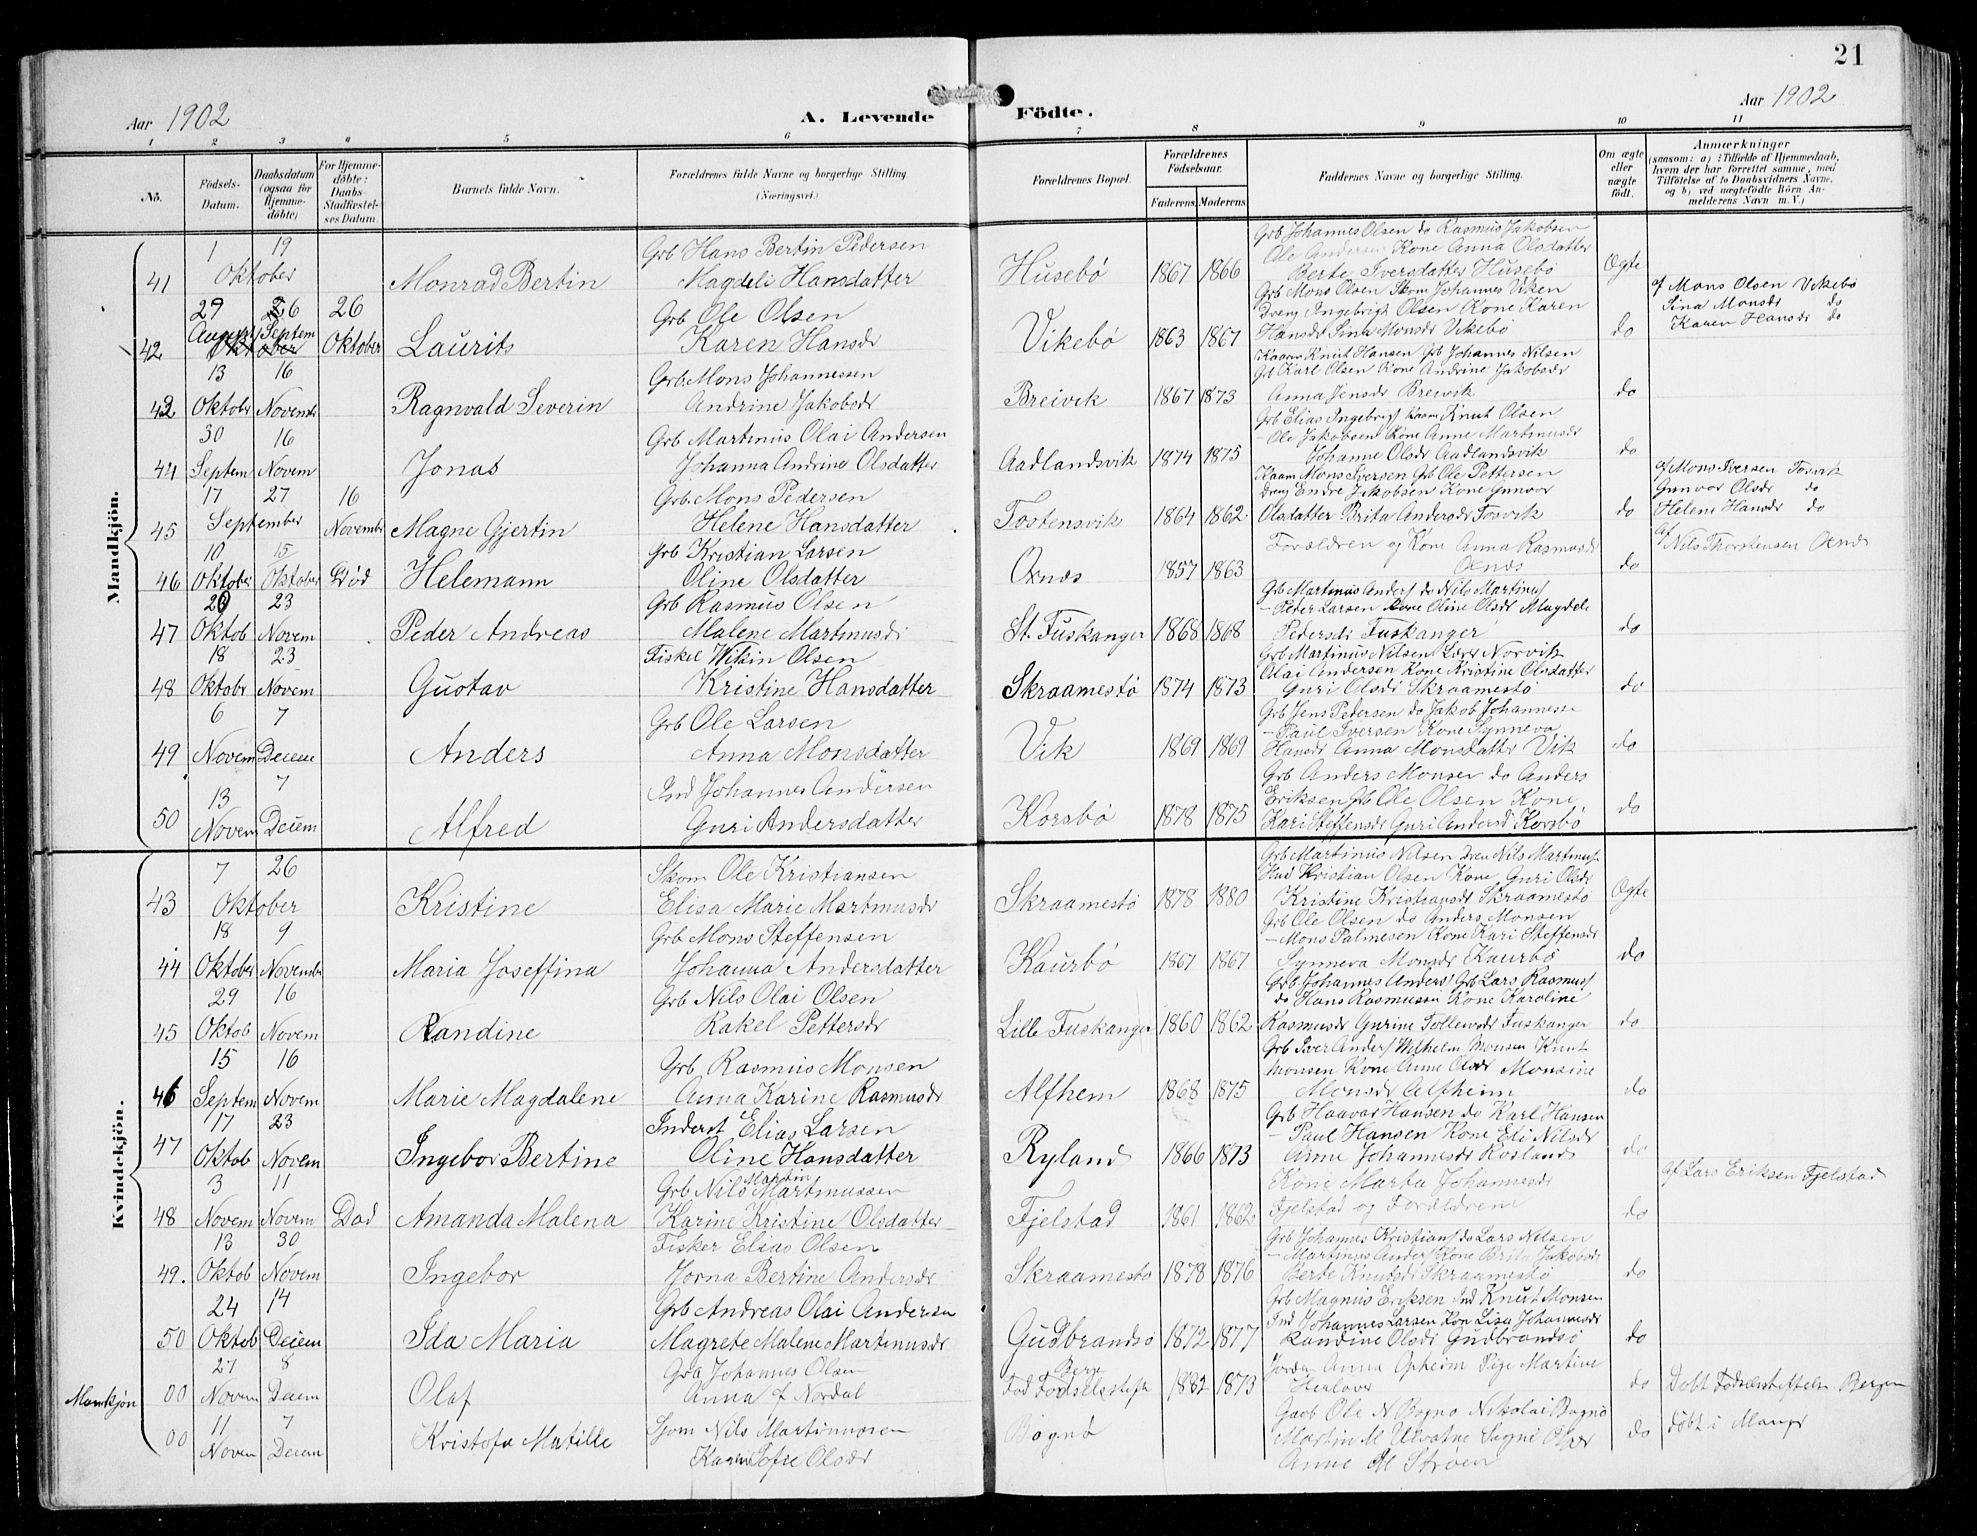 21
Aar 1902 A. Levende Födte. Aar 1902
1 2 3 4 5 6 7 8 9 10 11
No. Födsels-Datum. Daabsdatum (ogsaa for Hjemmedöbte) For Hjemmedöbte: Daabs-Stadfæstelses Datum. Barnets fulde Navn. Forældrenes fulde Navne og borgerlige Stilling. (Næringsvei.) Forældrenes Bopæl. Forældrenes Födselsaar. Faderens. Moderens. Faddernes Navne og borgerlige Stilling. Om ægte eller uægte födt. Anmærkninger (saasom: a) i Tilfælde af Hjemmedaab, hvem der har forrettet samme, med Tilföielse af to Daabsvidners Navne, og b) ved uægtefödte Börn Anmelderens Navn m. V.)
Mandkjön.
41 1 19 Oktober Monrad Bertin Grb Hans Bertin Pedersen Magdeli Hansdatter Husebö 1867 1866 Grb Johannes Olsen do Rasmus Jakobsen Ole Andersen Kone Anna Olsdatter Berte Iversdatter Husebö Ægte
42 29 August 26 Septem 26 Oktober Laurits Grb Ole Olsen Karen Hansdr Vikebö 1863 1867 Grb Mons Olsen Skom Johannes Viken Dreng Ingebrigt Olsen Kone Karen Hansdr Sina Monsdr Vikebö do af Mons Olsen Vikebö Sina Monsdr do Karen Hansdr do
43 13 Oktobr 16 Novembr Ragnvald Severin Grb Mons Johannessen Andrine Jakobsdr Breivik 1867 1873 Kaarm Knut Hansen Grb Johannes Nilsen Grb Karl Olsen Kone Andrine Jakobsdr Anna Jensdr Breivik do
44 30 Septem 16 Novem Jonas Grb Martinus Olai Andersen Johanna Andrine Olsdatter Aadlandsvik 1874 1875 Grb Elias Ingebrigt Kaarm Knut Olsen - Ole Jakobsen Kone Anne Martinusdr Johanne Olsdr Aadlandsvik do
45 17 27 September 16 Novembr Magne Gjertin Grb Mons Pedersen Helene Hansdatter Tostensvik 1864 1862 Kaarm Mons Iversen Grb Ole Pettersen Dreng Endre Jakobsen Kone Gunvor Olsdatter Brita Andersdr Tosvik do af Mons Iversen Tosvik Gunvor Olsdr do Helene Hansdr do
46 10 Oktober 15 Oktober Död Helemann Grb Kristian Larsen Oline Olsdatter Ørnæs 1857 1863 Forældren og Kone Anna Rasmusdr Ørnæs do af Nils Thorstensen
47 20 Oktob 23 Novem Peder Andreas Grb Rasmus Olsen Malene Martinusdr St. Fuskanger 1868 1868 Grb Martinus Anders do Nils Martinus - Peder Larsen Kone Oline Olsdr Magdele Pedersdr Fuskanger do
48 18 Oktobr 23 Novem Gustav Fisker Olsen Kristine Hansdatter Skraamestö 1874 1873 Grb Martinus Nilsen Lærer Norvik Olai Andersen Kone Kristine Olsdatter Guri Olsdr Skraamestö do
49 6 Novem 7 Decem Anders Grb Ole Larsen Anna Monsdatter Vik 1869 1869 Grb Jens Pedersen do Jakob Johannesen - Paul Iversen Kone Synneva Hansdr Anna Monsdatter Vik do
50 13 Novem 7 Decem Alfred Ind Johannes Andersen Guri Andersdatter Korsbö 1878 1875 Grb Anders Monsen do Anders Eriksen Grb Ole Olsen Kone Kari Steffensdr Guri Andersd Korsbö do
Kvindekjön.
43 7 26 Oktober Kristine Skom Ole Kristiansen Elisa Marie Martinusdr Skraamestö 1878 1880 Grb Martinus Nilsen Dren Nils Martinus Kristian Olsen Kone Guri Olsdr Kristine Kristiansdr Skraamestö Ægte
44 18 Oktober 9 Novembr Maria Joseffina Grb Mons Steffensen Johanna Andersdatter Kaurbö 1867 1867 Grb Ole Olsen do Anders Monsen - Mons Palmesen Kone Kari Steffensdr Synneva Monsdr Kaurbö do
45 29 Oktob 16 Novem Randine Grb Nils Olai Olsen Rakel Pettersdr Lille Fuskanger 1860 1862 Grb Johannes Anders Grb Lars Rasmus do Hans Rasmussen Kone Karoline Rasmusdr Gurine Tollevsdr Fuskanger do
46 15 Septem 16 Novem Marie Magdalene Grb Rasmus Monsen Anna Karine Rasmusdr Alfhem 1868 1875 Grb Iver Anders Wilhelm Monsen Knut Monsen Kone Anne Olsdr Monsine Monsdr Alfheim do
47 17 Oktob 23 Novem Ingebor Bertine Inderst Elias Larsen Oline Hansdatter Ryland 1866 1873 Grb Haavar Hansen do Karl Hansen - Paul Hansen Kone Eli Nilsdr Anne Johannesdr Rosland do
48 3 Novem 11 Novem Död Amanda Malena Grb Nils Martin Martinussen Karine Kristine Olsdatter Fjelstad 1861 1862 Kone Marta Johannesdr Fjelstad og Forældrene do af Lars Eriksen Fjelstad
49. 13 Oktob 30 Novem Ingebor Fisker Elias Olsen Jorna Bertine Andersdr Skraamestö 1878 1876 Grb Johannes Kristians do Lars Nilsen - Martinus Anders Kone Brita Jakobsdr Berte Knutsdr Skraamestö do
50 24 Oktob 14 Decem Ida Maria Grb Andreas Olai Andersen Magrete Malene Martinusdr Gudbrandsö 1872 1877 Grb Magnus Eriksen Ind Knut Monsen Ind Johannes Larsen Kon Lisa Johannesdr Randine Olsdr Gudbrandsö do
Mankjön 00 27 Novem 8 Decem Olaf Grb Johannes Olsen Anna f Nordal Berg Fod Fødselsstift 1882 1873 Jordm Anna Opheim Pige Martine Herlover do Döbt Fødselsstiftelse Bergen
00 11 Noven 7 Decem Kristofa Matille Sjom Nils Martinussen Karen Sofie Olsdr Bognö Gaab Ole N Bogno Nikolai Bognö Martin M Ulvatne Signe Olser Anne M Strøen do Döbt i Manger